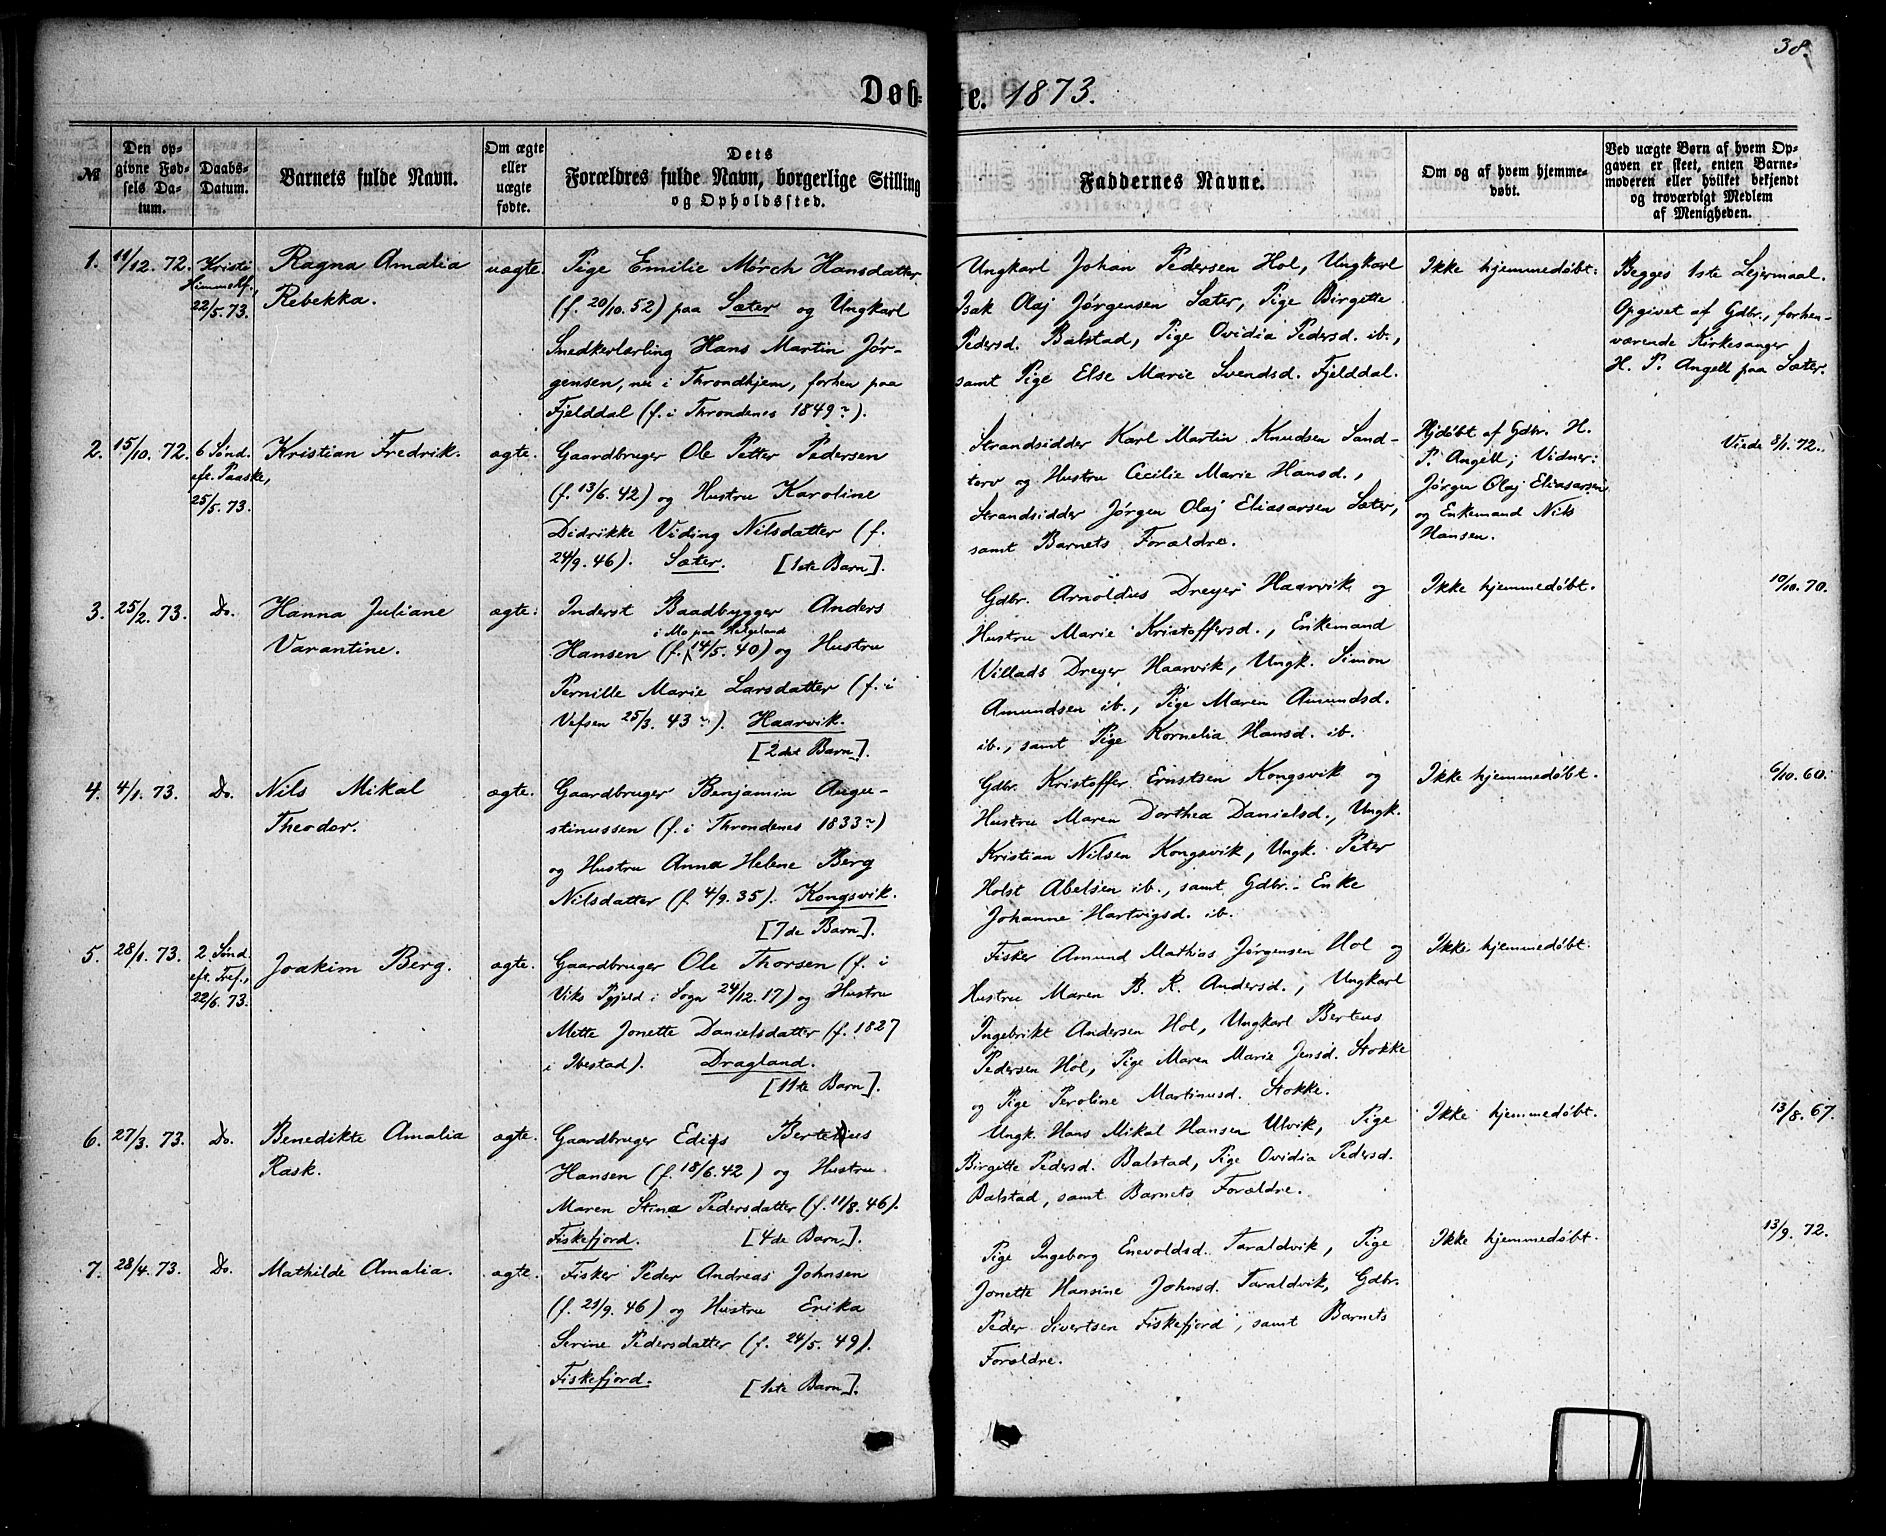 38.
Døbte. 1873.
№
Den opgivne Fødsels Datum.
Daabs-Datum.
Barnets fulde Navn.
Om ægte eller uægte fødte.
Dets Forældres fulde Navn, borgerlige Stilling og Opholdssted.
Faddernes Navne.
Om og af hvem hjemmedøbt.
Ved uægte Børn af hvem Opgaven er skeet, enten Barnemoderen eller hvilket bekjendt og troværdigt Medlem af Menigheden.
1.
11/12. 72.
Kristi
Himmelf.,
22/5. 73.
Ragna Amalia
Rebekka.
uægte.
Pige Emilie Mørch Hansdatter
(f. 20/10. 52) paa Sæter og Ungkarl
Snedkerlærling Hans Martin Jør-
gensen, nu i Throndhjem, forhen paa
Fjelddal (f. i Throndenes 1849 ).
Ungkarl Johan Pedersen Hol, Ungkarl
Isak Olaj Jørgensen Sæter, Pige Birgitte
Pedersd. Balstad, Pige Ovidia Pedersd. ib.,
samt Pige Else Marie Svendsd. Fjelddal.
Ikke hjemmedøbt.
Begges 1ste Lejermaal.
Opgivet af Gdbr., forhen-
værende Kirkesanger
H. P. Angell paa Sæter.
2.
15/10. 72.
6 Sønd.
eft. Paaske,
25/5. 73.
Kristian Fredrik.
ægte.
Gaardbruger Ole Petter Pedersen
(f. 13/6. 42) og Hustru Karoline
Didrikke Viding Nilsdatter (f.
24/9. 46). Sæter. [1ste Barn].
Strandsidder Karl Martin Knudsen Sand-
torv og Hustru Cecilie Marie Hansd.,
Strandsidder Jørgen Olaj Eliasarsen Sæter,
samt Barnets Forældre.
Hjdøbt af Gdbr. H.
P. Angell; Vidner:
Jørgen Olaj Eliasarsen
og Enkemand Nils
Hansen.
Viede 8/1. 72.
3.
25/2. 73.
Do.
Hanna Juliane
Varantine.
ægte.
Inderst Baadbygger Anders
i Mo paa Helgeland
Hansen (f. 14/5. 40) og Hustru
Pernille Marie Larsdatter (f. i
Vefsen 25/3. 43 ). Haarvik.
[2det Barn].
Gdbr. Arnoldus Dreyer Haarvik og
Hustru Marie Kristoffersd., Enkemand
Villads Dreyer Haarvik, Ungk. Simon
Amundsen ib., Pige Maren Amundsd.
ib., samt Pige Kornelia Hansd. ib.
Ikke hjemmedøbt.
10/10. 70.
4.
4/1. 73.
Do.
Nils Mikal
Theodor.
ægte.
Gaardbruger Benjamin Augu-
stinussen (f. i Throndenes 1833 )
og Hustru Anna Helene Berg
Nilsdatter (f. 4/9. 35). Kongsvik.
[7de Barn].
Gdbr. Kristoffer Ernstsen Kongsvik og
Hustru Maren Dorthea Danielsd., Ungk.
Kristian Nilsen Kongsvik, Ungk. Peter
Holst Abelsen ib., samt Gdbr.- Enke
Johanne Hartvigsd. ib.
Ikke hjemmedøbt.
6/10. 60.
5.
28/1. 73.
2 Sønd.
eft. Tref.,
22/6. 73.
Joakim Berg.
ægte.
Gaardbruger Ole Thorsen (f. i
Viks Pgjæld i Sogn 24/12. 17) og Hustru
Mette Jonette Danielsdatter (f. 1827
i Ibestad). Dragland.
[11te Barn].
Fisker Amund Mathias Jørgensen Hol og
Hustru Maren B. R. Andersd., Ungkarl
Ingebrikt Andersen Hol, Ungkarl Berteus
Pedersen Hol, Pige Maren Marie Jensd. Stokke
og Pige Peroline Martinusd. Stokke.
Ikke hjemmedøbt.
6.
27/3. 73.
Do.
Benedikte Amalia
Rask.
ægte.
Gaardbruger Edias Berteus
Hansen (f. 18/6. 42) og Hustru
Maren Stina Pedersdatter (f. 11/8. 46).
Fiskefjord. [4de Barn].
Ungk. Hans Mikal Hansen Ulvik, Pige
Birgitte Pedersd. Balstad, Pige Ovidia Pedersd.
Balstad, samt Barnets Forældre.
Ikke hjemmedøbt.
13/8. 67.
7.
28/4. 73.
Do.
Mathilde Amalia.
ægte.
Fisker Peder Andreas Johnsen
(f. 23/9. 46) og Hustru Erika
Serine Pedersdatter (f. 24/5. 49).
Fiskefjord. [1ste Barn].
Pige Ingeborg Enevoldsd. Taraldvik, Pige
Jonette Hansine Johnsd. Taraldvik, Gdbr.
Peder Sivertsen Fiskefjord, samt Barnets
Forældre.
Ikke hjemmedøbt.
13/9. 72.